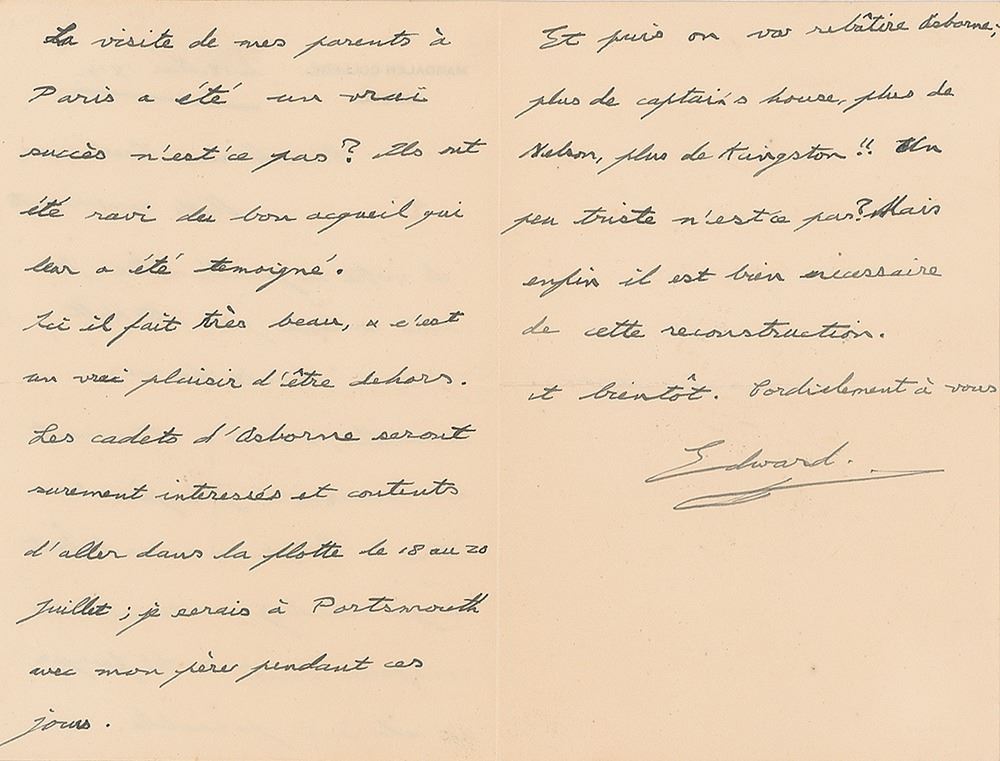 La visite de mes parents à
Paris a été un vrai
succès n'est'ce pas? Ils ont
été ravi du bon acqueil qui
leur a été temoigné.
Ici il fait très beau, & c'est
un vrai plaisir d'être dehors.
Les cadets d'Osborne seront
surement interessés et contents
d'aller dans la flotte le 18 au 20
Juillet; je serais à Portsmouth
avec mon père pendant ces
jours.
Et puis on va rebâtire Osborne;
plus de captain's house, plus de
Nelson, plus de Kingston!! Un
peu triste n'est'ce pas? Mais
enfin il est bien nécessaire
de cette reconstruction.
bientôt. Cordielement à vous
Edward.